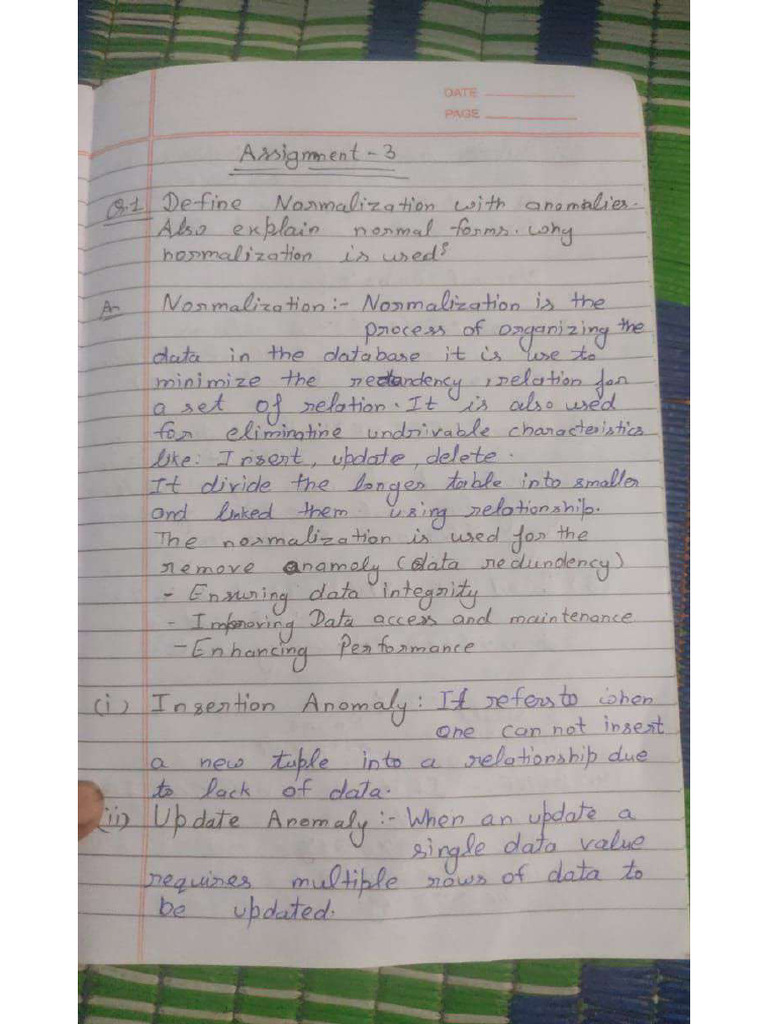 DATE
PAGE
Assignment - 3
Q.1 Define Normalization with anomalies.
Also explain normal forms. why
normalization is used?
A- Normalization :- Normalization is the
process of organizing the
data in the database it is use to
minimize the redundency , relation for
a set of relation. It is also used
for eliminatine undrivable characteristics
like: Insert, update, delete.
It divide the longer table into smaller
and linked them using relationship.
The normalization is used for the
remove anamoly (data redundency)
- Ensuring data integrity
- Improving Data access and maintenance
- Enhancing Performance
(i) Insertion Anomaly : It refers to when
one can not insert
a new tuple into a relationship due
to lack of data.
(ii) Update Anomaly :- When an update a
single data value
requires multiple rows of data to
be updated.